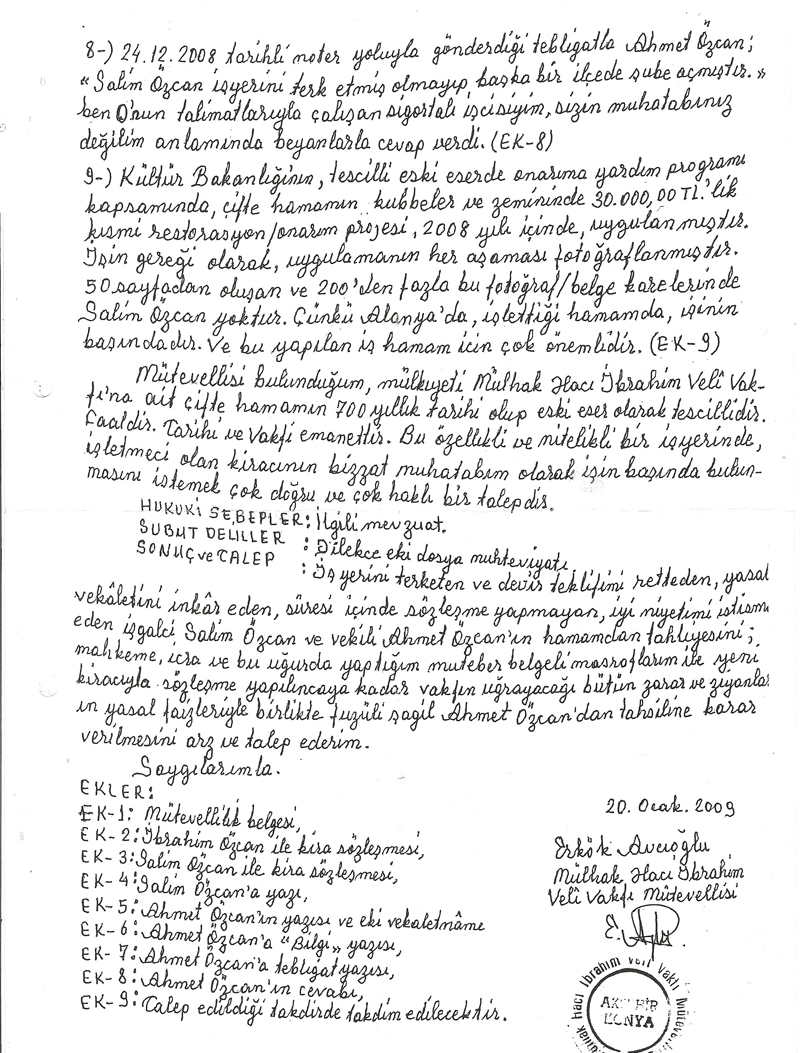 8-) 24.12.2008 tarihli noter yoluyla gönderdiği tebligatla Ahmet Özcan;
"Salim Özcan işyerini terk etmiş olmayıp, başka bir ilçede şube açmıştır.»
ben O'nun talimatlarıyla çalışan sigortalı işçisiyim, sizin muhatabınız
değilim anlamında beyanlarla cevap verdi. (EK-8)
9-) Kültür Bakanlığının, tescilli eski eserde onarıma yardım programı
kapsamında, çifte hamamın kubbeler ve zemininde 30.000,00 TL.'lik
kısmi restorasyon/onarım projesi, 2008 yılı içinde, uygulanmıştır.
İşin gereği olarak, uygulamanın her aşaması fotoğraflanmıştır.
50 sayfadan oluşan ve 200'den fazla bu fotoğraf/belge karelerinde
Salim Özcan yoktur. Çünkü Alanya'da, işlettiği hamamda, işinin
başındadır. Ve bu yapılan iş hamam icin çok önemlidir. (EK-9)
Mütevellisi bulunduğum, mülkiyeti Mülhak Hacı İbrahim Velî Vak-
fı'na ait çifte hamamın 700 yıllık tarihi olup eski eser olarak tescillidir.
Faaldir. Tarihi ve Vakfi emanettir. Bu özellikli ve nitelikli bir işyerinde,
işletmeci olan kiracının bizzat muhatabım olarak işin başında bulun-
masını istemek çok doğru ve çok haklı bir talepdir.
HUKUKİ SEBEPLER: İlgili mevzuat.
SUBUT DELİLLER : Dilekce eki dosya muhteviyatı.
SONUÇ ve TALEP : İş yerini terketen ve devir teklifimi retteden, yasal
vekâletini inkâr eden, süresi içinde sözleşme yapmayan, iyi niyetimi istisma
eden işgalci Salim Özcan ve vekili Ahmet Özcan'ın hamamdan tahliyesini;
mahkeme, icra ve bu uğurda yaptığım muteber belgeli masroflarım ile yeni
kiracıyla sözleşme yapılıncaya kadar vakfın uğrayacağı bütün zarar ve ziyanlar
ın yasal faizleriyle birlikte fuzüli şagil Ahmet Özcan'dan tahsiline karar
verilmesini arz ve talep ederim.
Saygılarımla.
EKLER:
EK-1: Mütevellilik belgesi,
EK-2: İbrahim Özcan ile kira sözleşmesi,
EK-3: Salim Özcan ile kira sözleşmesi,
EK-4: Salim Özcan'a yazı,
EK-5: Ahmet Özcan'ın yazısı ve eki vekaletnâme
EK-6: Ahmet Özcan'a "Bilgi» yazısı,
EK-7: Ahmet Özcan'a tebligat yazısı,
EK-8: Ahmet Özcan'ın cevabı,
EK-9: Talep edildiği takdirde takdim edilecektir.
20. Ocak. 2009
Erkök Avcıoğlu
Mülhak Hacı İbrahim
Velî Vakfı Mütevellisi
Hacı İbrahim Veli Vakfı
KONYA